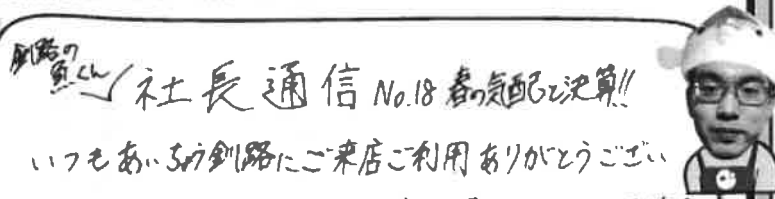 釧路の
魚くん
社長通信 No.18 春の気配と決算!!
いつもあいちょう釧路にご来店ご利用ありがとうござい